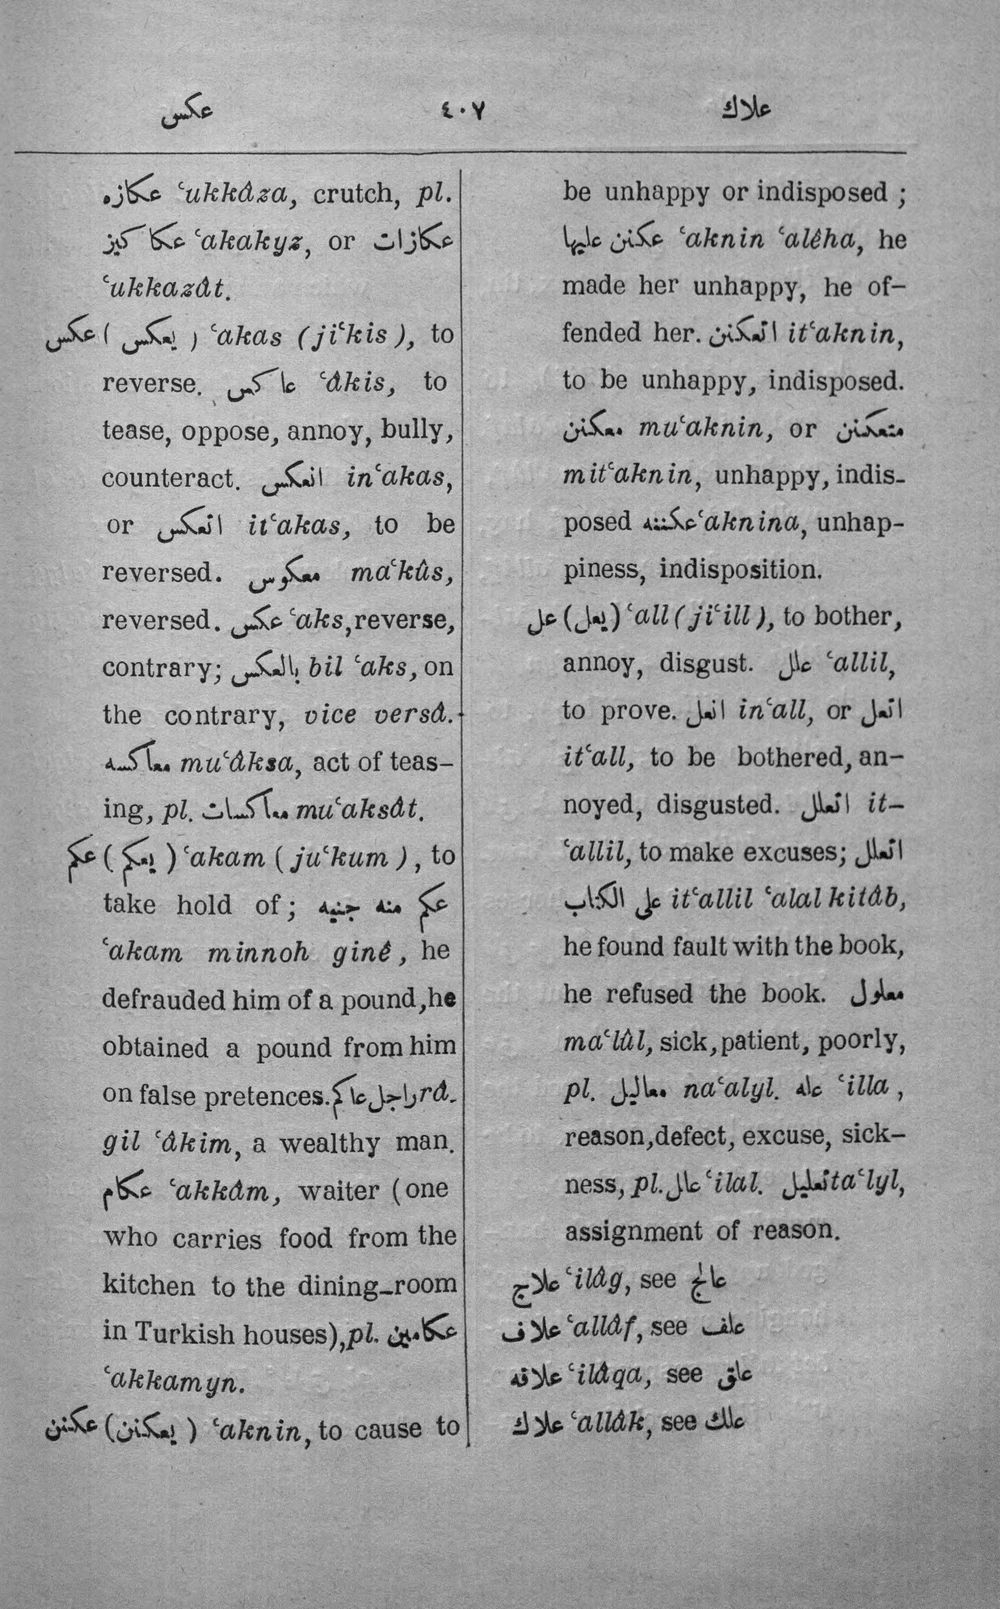 عكس ٤٠٧ علاك
عكازه ‘ukkâza, crutch, pl.
عكاكيز ‘akakyz, or عكازات
‘ukkazât.
عكس (يعكس) ‘akas (ji‘kis), to
reverse. عاكس ‘âkis, to
tease, oppose, annoy, bully,
counteract. انعكس in‘akas,
or اتعكس it‘akas, to be
reversed. معكوس ma‘kûs,
reversed. عكس ‘aks, reverse,
contrary; بالعكس bil ‘aks, on
the contrary, vice versâ.
معاكسه mu‘âksa, act of teas-
ing, pl. معاكسات mu‘aksât.
عكم (يعكم) ‘akam (ju‘kum), to
take hold of; عكم منه جنيه
‘akam minnoh ginê, he
defrauded him of a pound, he
obtained a pound from him
on false pretences. راجل عاكم râ-
gil ‘âkim, a wealthy man.
عكام ‘akkâm, waiter (one
who carries food from the
kitchen to the dining-room
in Turkish houses), pl. عكامين
‘akkamyn.
عكنن (يعكنن) ‘aknin, to cause to
be unhappy or indisposed;
عكنن عليها ‘aknin ‘alêha, he
made her unhappy, he of-
fended her. اتعكنن it‘aknin,
to be unhappy, indisposed.
معكنن mu‘aknin, or متعكنن
mit‘aknin, unhappy, indis-
posed عكننه ‘aknina, unhap-
piness, indisposition.
عل (يعل) ‘all (ji‘ill), to bother,
annoy, disgust. علل ‘allil,
to prove. انعل in‘all, or اتعل
it‘all, to be bothered, an-
noyed, disgusted. اتعلل it-
‘allil, to make excuses; اتعلل
على الكتاب it‘allil ‘alal kitâb,
he found fault with the book,
he refused the book. معلول
ma‘lûl, sick, patient, poorly,
pl. معاليل na‘alyl. عله ‘illa,
reason, defect, excuse, sick-
ness, pl. علل ‘ilal. تعليل ta‘lyl,
assignment of reason.
علاج ‘ilâg, see عالج
علاف ‘allâf, see علف
علاقه ‘ilâqa, see علق
علاك ‘allâk, see علك